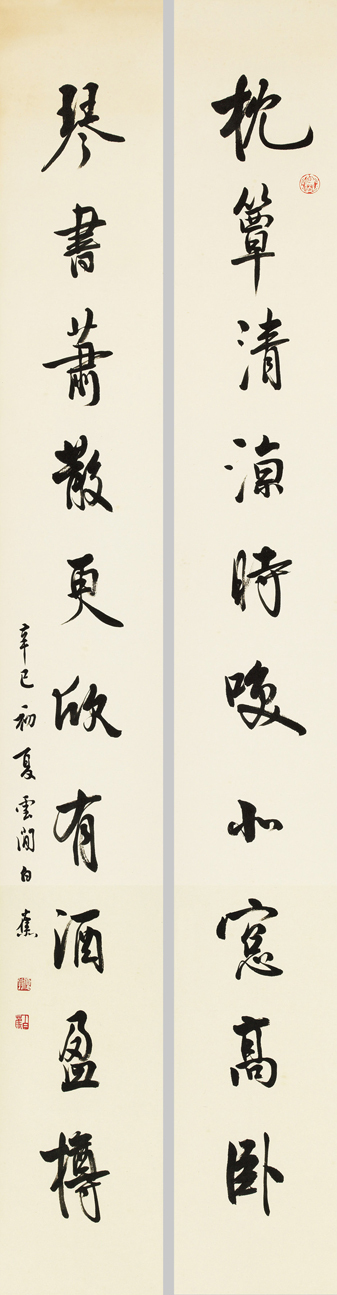 枕簟清涼時喚北窓高卧
琴書蕭散更欣有酒盈樽
辛巳初夏雲間白蕉